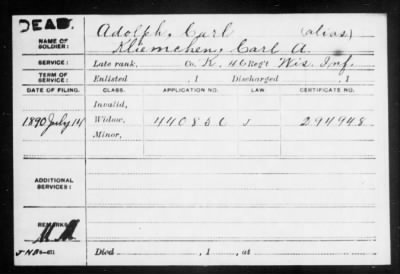 DEAD.
NAME OF SOLDIER: Adolph, Carl (alias)
Kliemchen, Carl A.
SERVICE: Late rank, Co. K, 46 Reg't Wis. Inf.
TERM OF SERVICE: Enlisted , 1 Discharged , 1
DATE OF FILING. CLASS. APPLICATION NO. LAW. CERTIFICATE NO.
Invalid,
1890 July 14 Widow, 440836 J 294948
Minor,
ADDITIONAL SERVICES:
REMARKS:
Died , 1 , at